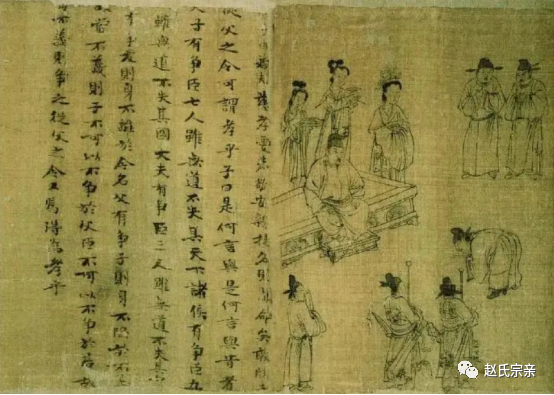 安親揚名則聞命矣敢問
從父之令可謂孝乎子曰是何言與是何言與昔者
天子有爭臣七人雖無道不失其天下諸侯有爭臣五
雖無道不失其國大夫有爭臣三人雖無道不失其
有爭友則身不離於令名父有爭子則身不陷於不
當不義則子不可以不爭於父臣不可以不爭於君故
不義則爭之從父之令又焉得為孝乎
赵氏宗亲